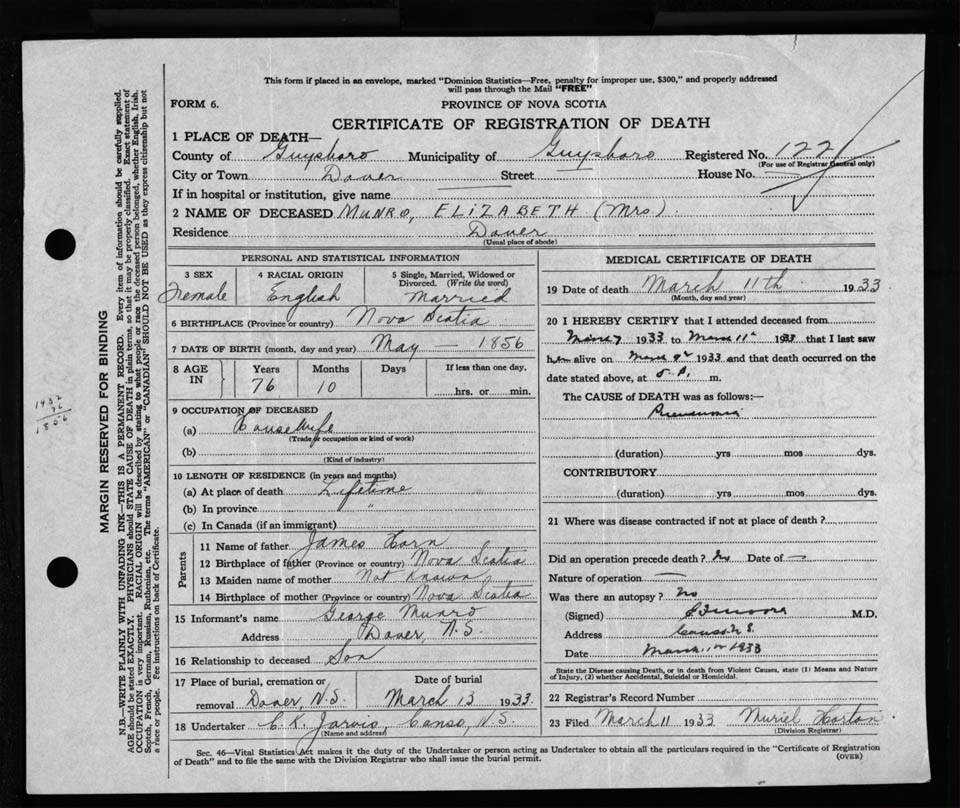 This form if placed in an envelope, marked "Dominion Statistics—Free, penalty for improper use, $300," and properly addressed
will pass through the Mail "FREE"
FORM 6. PROVINCE OF NOVA SCOTIA
CERTIFICATE OF REGISTRATION OF DEATH
1 PLACE OF DEATH—
County of Guysboro Municipality of Guysboro Registered No. 122
(For use of Registrar General only)
City or Town Dover Street House No.
If in hospital or institution, give name
2 NAME OF DECEASED MUNRO, ELIZABETH (Mrs).
Residence Dover
(Usual place of abode)
PERSONAL AND STATISTICAL INFORMATION
3 SEX 4 RACIAL ORIGIN 5 Single, Married, Widowed or
Divorced. (Write the word)
Female English Married
6 BIRTHPLACE (Province or country) Nova Scotia
7 DATE OF BIRTH (month, day and year) May — 1856
8 AGE IN Years Months Days If less than one day,
76 10 hrs. or min.
9 OCCUPATION OF DECEASED
(a) Housewife
(Trade or occupation or kind of work)
(b)
(Kind of industry)
10 LENGTH OF RESIDENCE (in years and months)
(a) At place of death Lifetime
(b) In province "
(c) In Canada (if an immigrant)
Parents
11 Name of father James Horn
12 Birthplace of father (Province or country) Nova Scotia
13 Maiden name of mother Not Known
14 Birthplace of mother (Province or country) Nova Scotia
15 Informant's name George Munro
Address Dover, N.S.
16 Relationship to deceased Son
17 Place of burial, cremation or Date of burial
removal Dover, N.S. March 13 1933.
18 Undertaker C.R. Jarvis, Canso, N.S.
(Name and address)
MEDICAL CERTIFICATE OF DEATH
19 Date of death March 11th 1933
(Month, day and year)
20 I HEREBY CERTIFY that I attended deceased from
1933 to March 11th 1933 that I last saw
her alive on March 9th 1933 and that death occurred on the
date stated above, at m.
The CAUSE of DEATH was as follows:—
Pneumonia
(duration) yrs mos dys.
CONTRIBUTORY
(duration) yrs mos dys.
21 Where was disease contracted if not at place of death?
Did an operation precede death? No Date of —
Nature of operation —
Was there an autopsy? No
(Signed) M.D.
Address Canso N.S.
Date March 11th 1933
State the Disease causing Death, or in death from Violent Causes, state (1) Means and Nature
of Injury, (2) whether Accidental, Suicidal or Homicidal.
22 Registrar's Record Number
23 Filed March 11 1933 Muriel Horton
(Division Registrar)
Sec. 46—Vital Statistics Act makes it the duty of the Undertaker or person acting as Undertaker to obtain all the particulars required in the "Certificate of Registration
of Death" and to file the same with the Division Registrar who shall issue the burial permit. (OVER)
MARGIN RESERVED FOR BINDING
N.B.—WRITE PLAINLY WITH UNFADING INK—THIS IS A PERMANENT RECORD. Every item of information should be carefully supplied.
AGE should be stated EXACTLY. PHYSICIANS should STATE CAUSE OF DEATH in plain terms, so that it may be properly classified. Exact statement of
OCCUPATION is very important. RACIAL ORIGIN will be described by stating to what people or race the deceased person belonged, whether English, Irish,
Scotch, French, German, Russian, Ruthenian, etc. The terms "AMERICAN" or "CANADIAN" SHOULD NOT BE USED as they express citizenship but not
a race or people. Fee instructions on back of Certificate.
1932
76
1856